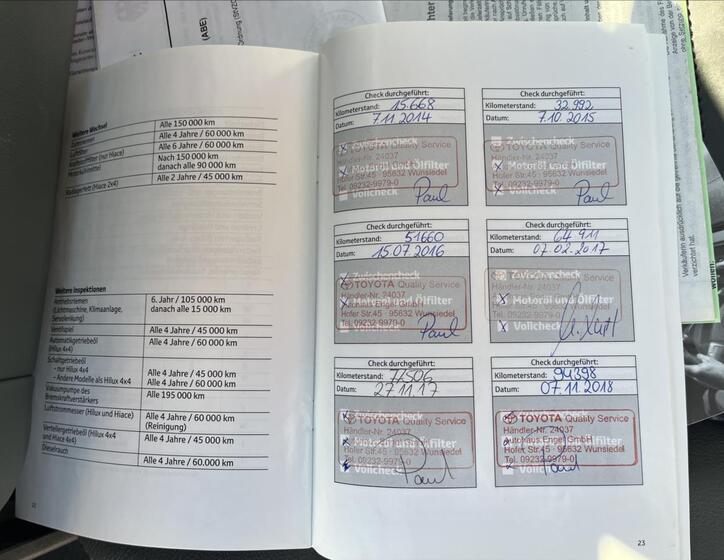 (ABE)
Weitere Wechsel
Alle 150 000 km
Alle 4 Jahre / 60 000 km
Luftfilter
Alle 6 Jahre / 60 000 km
(nur Hiace)
Nach 150 000 km
danach alle 90 000 km
Alle 2 Jahre / 45 000 km
Radlagerfett (Hiace 2x4)
Weitere Inspektionen
Antriebsriemen
(Lichtmaschine, Klimaanlage,
Servolenkung)
6. Jahr / 105 000 km
danach alle 15 000 km
Ventilspiel
Alle 4 Jahre / 45 000 km
Automatikgetriebeöl
(Hilux 4x4)
Alle 4 Jahre / 60 000 km
Schaltgetriebeöl
- nur Hilux 4x4
Alle 4 Jahre / 45 000 km
- Andere Modelle als Hilux 4x4
Alle 4 Jahre / 60 000 km
Vakuumpumpe des
Bremskraftverstärkers
Alle 195 000 km
Luftstrommesser (Hilux und Hiace)
Alle 4 Jahre / 60 000 km
(Reinigung)
Verteilergetriebeöl (Hilux 4x4
und Hiace 4x4)
Alle 4 Jahre / 45 000 km
Dieselrauch
Alle 4 Jahre / 60.000 km
22
Check durchgeführt:
Kilometerstand: 15.668
Datum: 7.11.2014
Zwischencheck
TOYOTA Quality Service
Händler-Nr. 24037
Motoröl und Ölfilter
Hofer Str.45 · 95632 Wunsiedel
Tel. 09232-9979-0
Vollcheck
Paul
Check durchgeführt:
Kilometerstand: 32.992
Datum: 7.10.2015
Zwischencheck
TOYOTA Quality Service
Händler-Nr. 24037
Motoröl und Ölfilter
Hofer Str.45 · 95632 Wunsiedel
Tel. 09232-9979-0
Vollcheck
Paul
Check durchgeführt:
Kilometerstand: 51660
Datum: 15.07.2016
Zwischencheck
TOYOTA Quality Service
Händler-Nr. 24037
Autohaus Engel GmbH
Motoröl und Ölfilter
Hofer Str.45 · 95632 Wunsiedel
Tel. 09232-9979-0
Vollcheck
Paul
Check durchgeführt:
Kilometerstand: 64 911
Datum: 07.02.2017
Zwischencheck
TOYOTA Quality Service
Händler-Nr. 24037
Motoröl und Ölfilter
Hofer Str.45 · 95632 Wunsiedel
Vollcheck
Check durchgeführt:
Kilometerstand: 77506
Datum: 27.11.17
TOYOTA Quality Service
Händler-Nr. 24037
Motoröl und Ölfilter
Hofer Str.45 · 95632 Wunsiedel
Tel. 09232-9979-0
Vollcheck
Paul
Check durchgeführt:
Kilometerstand: 94398
Datum: 07.11.2018
TOYOTA Quality Service
Händler-Nr. 24037
Autohaus Engel GmbH
Motoröl und Ölfilter
Hofer Str.45 · 95632 Wunsiedel
Tel. 09232-9979-0
Vollcheck
Paul
23
verzichtet hat.
wollen: